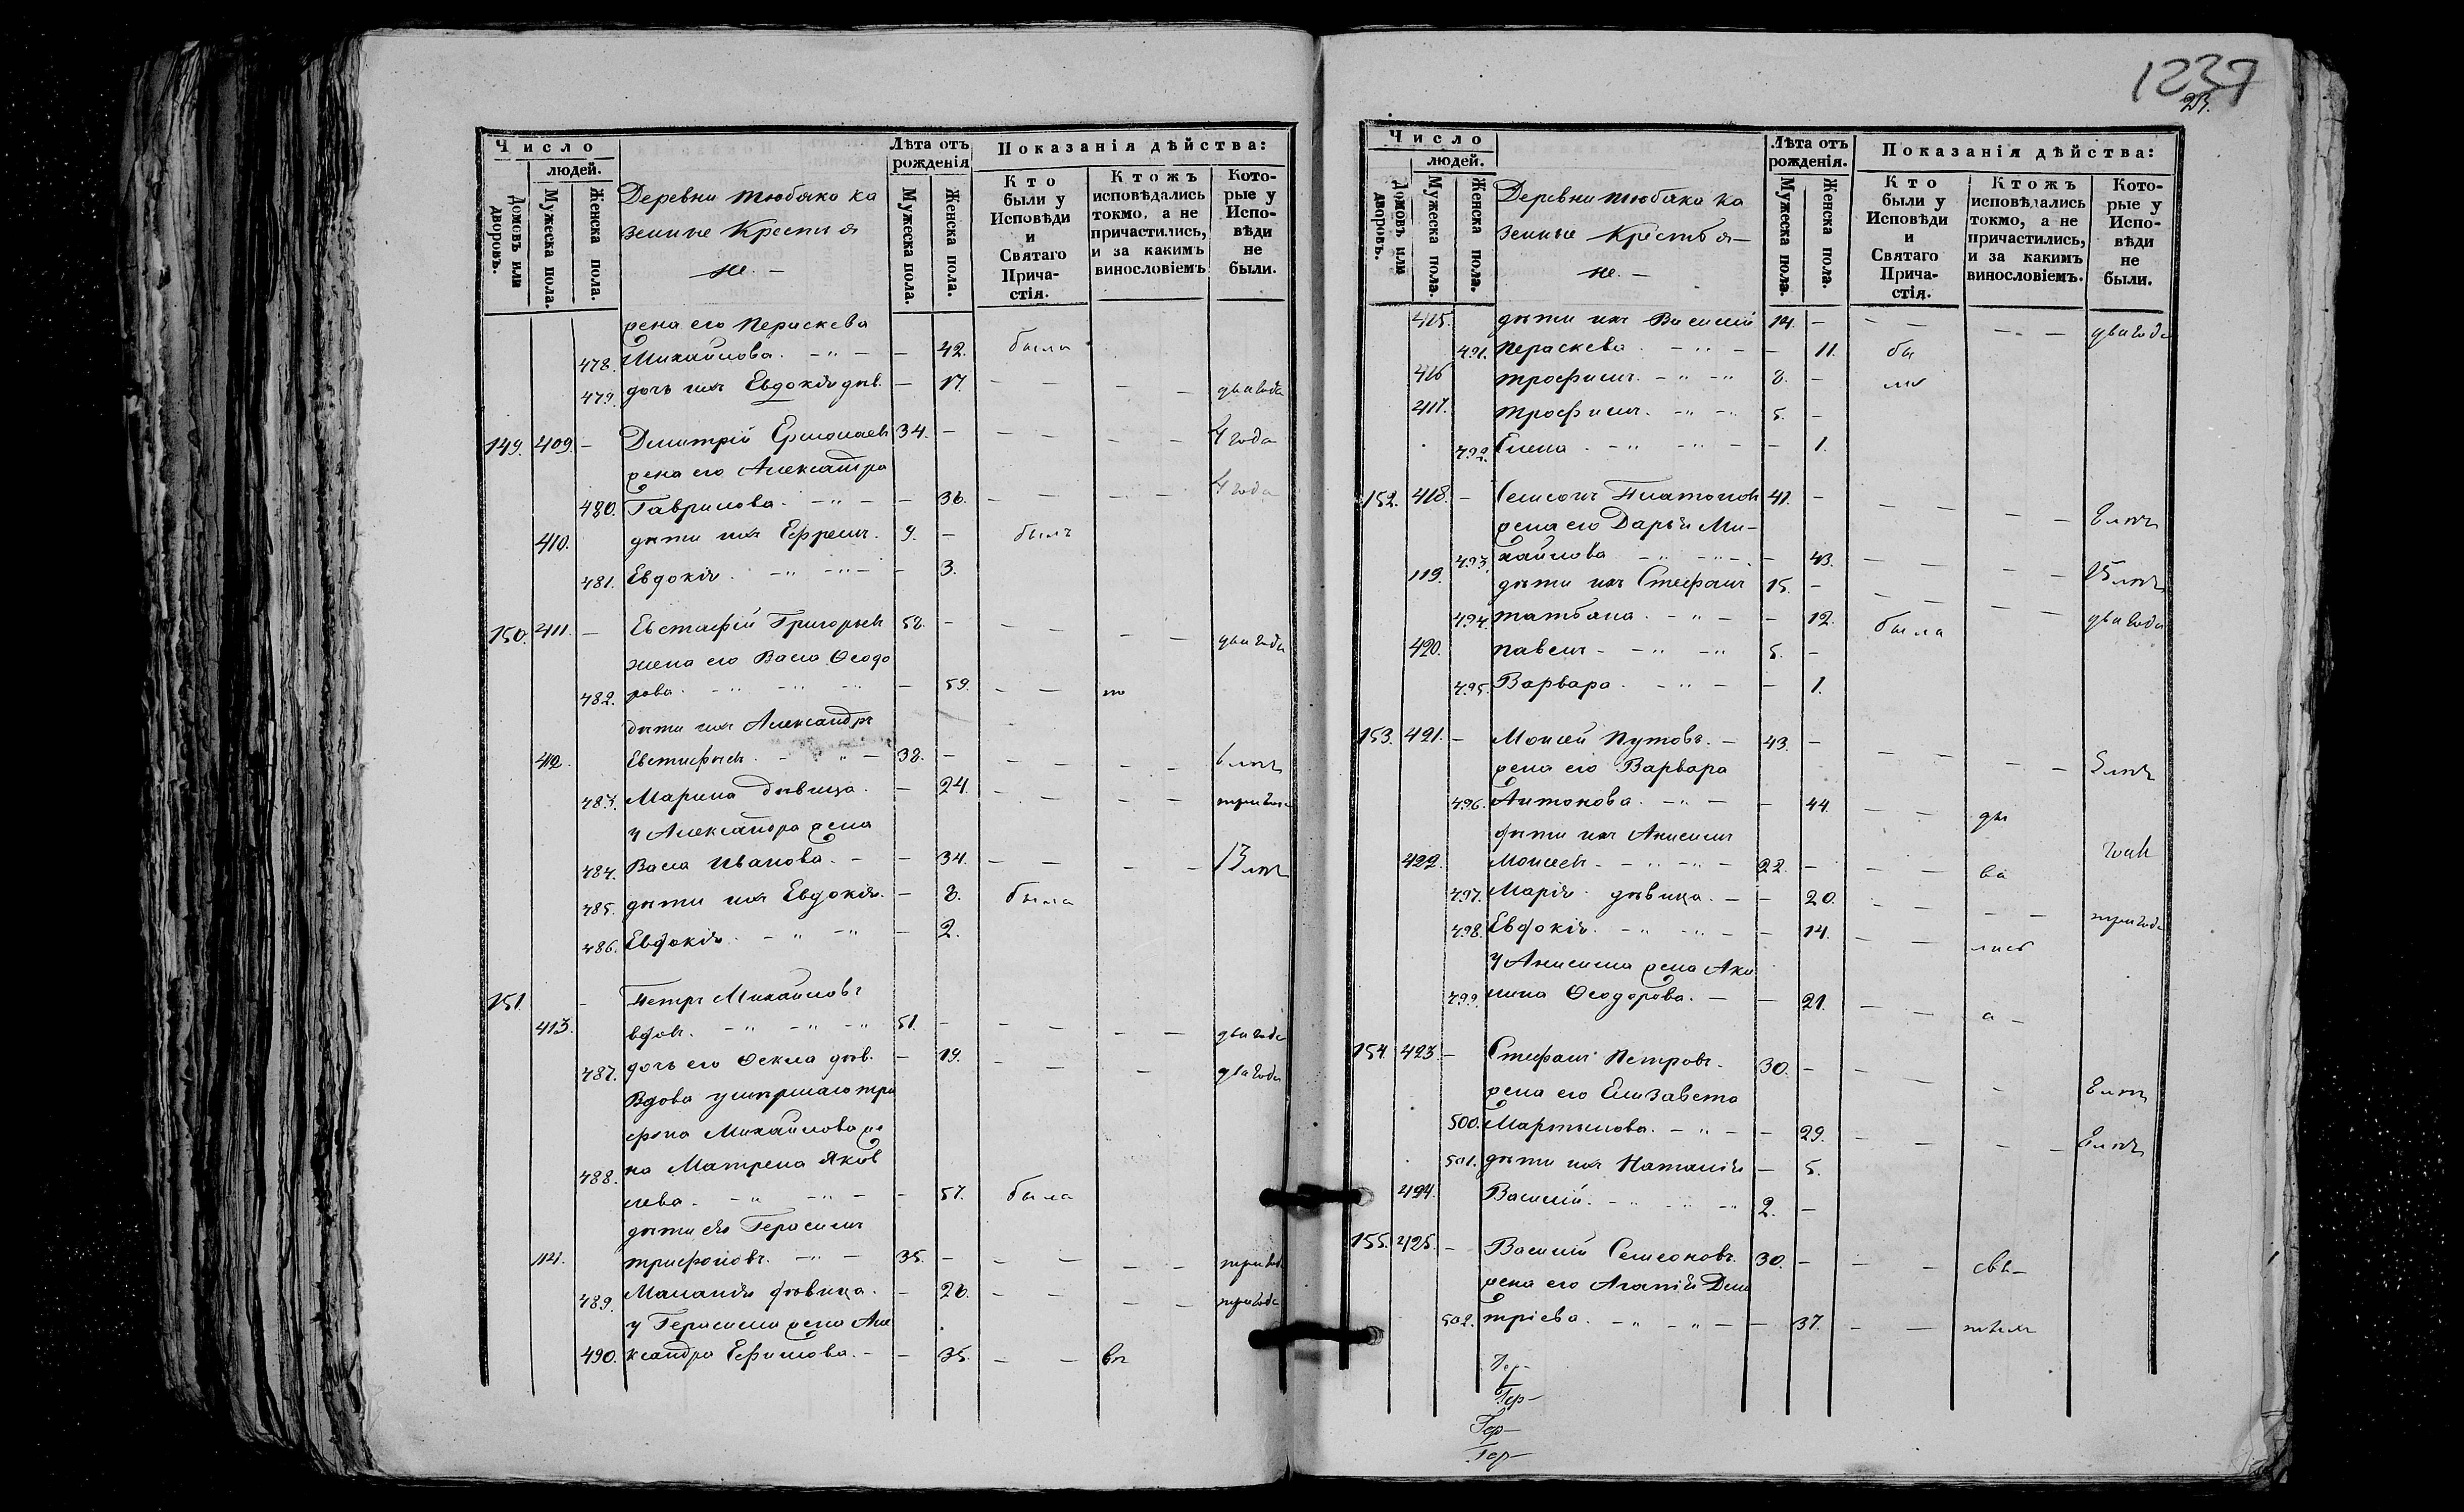 1237
Число
людей.
Домовъ или дворовъ.
Мужеска пола.
Женска пола.
Деревни Тюбяко ка
зенные Крестья
не. —
Лѣта отъ рожденія
Мужеска пола.
Женска пола.
Показанія дѣйства:
Кто были у Исповѣди и Святаго Прича-стія.
Ктожъ исповѣдались токмо, а не причастились, и за какимъ винословіемъ
Кото-рые у Испо-вѣди не были.
жена его Пераскева
478. Михайлова. — 42. была
479. дочь ихъ Евдокія дѣв. — 17. — два года
149. 409. — Дмитрій Ермолаевъ 34. — 4 года
жена его Александра
480. Гаврилова. — 36. — 4 года
410. дѣти ихъ Ефремъ. 9. — былъ
481. Евдокія. — 3.
150. 411. — Евстафій Григорьевъ 58. — два года
жена его Васса Ѳеодо
482. рова. — 59. —
дѣти ихъ Александръ
412. Евстафьевъ. — 38. —
483. Марина дѣвица. — 24. — три года
у Александра жена
484. Васса Иванова. — 34. — 13 лѣтъ
485. дѣти ихъ Евдокія. — 8. была
486. Евдокія. — 2.
151. — Петръ Михайловъ
413. вдовъ. — 51. — два года
487. дочь его Ѳекла дѣв. — 19. — два года
Вдова умершаго Три
фона Михайлова же
488. на Матрена Яков
лева. — 57. была
дѣти ея Герасимъ
414. Трифоновъ. — 35. —
489. Маланія дѣвица. — 26. — три года
у Герасима жена Але
490. ксандра Ефимова. — 35. —
Число
людей.
Домовъ или дворовъ.
Мужеска пола.
Женска пола.
Деревни Тюбяко ка
зенные Крестья—
не. —
Лѣта отъ рожденія.
Мужеска пола.
Женска пола.
Показанія дѣйства:
Кто были у Исповѣди и Святаго Прича-стія.
Ктожъ исповѣдались токмо, а не причастились, и за какимъ винословіемъ.
Кото-рые у Испо-вѣди не были.
415. дѣти ихъ Василій 14. — два года
491. Пераскева. — 11. бы
416 Трофимъ. 8. — ли
417. Трофимъ. 5. —
492. Елена. — 1.
152. 418. — Семеонъ Платоновъ 41. — 8 лѣтъ
жена его Дарья Ми—
493. хайлова — 43. — 15 лѣтъ
419. дѣти ихъ Стефанъ 15. — два года
494. Татьяна. — 12. была
420. Павелъ 5. —
495. Варвара. — 1.
153. 421. — Моисей Путовъ. 43. —
жена его Варвара
496. Антонова. — 44. —
дѣти ихъ Анисимъ
422. Моисеевъ 22. —
497. Марія дѣвица. — 20. — три года
498. Евдокія. — 14. —
у Анисима жена Аку
499. лина Ѳеодорова. — 21. —
154. 423. — Стефанъ Петровъ. 30. — 8 лѣтъ
жена его Елизавета
500. Мартынова. — 29. —
501. дѣти ихъ Наталія — 5.
424. Василій. 2. —
155. 425. — Василій Семеоновъ. 30. —
жена его Агапія Дми
502. тріева. — 37. —